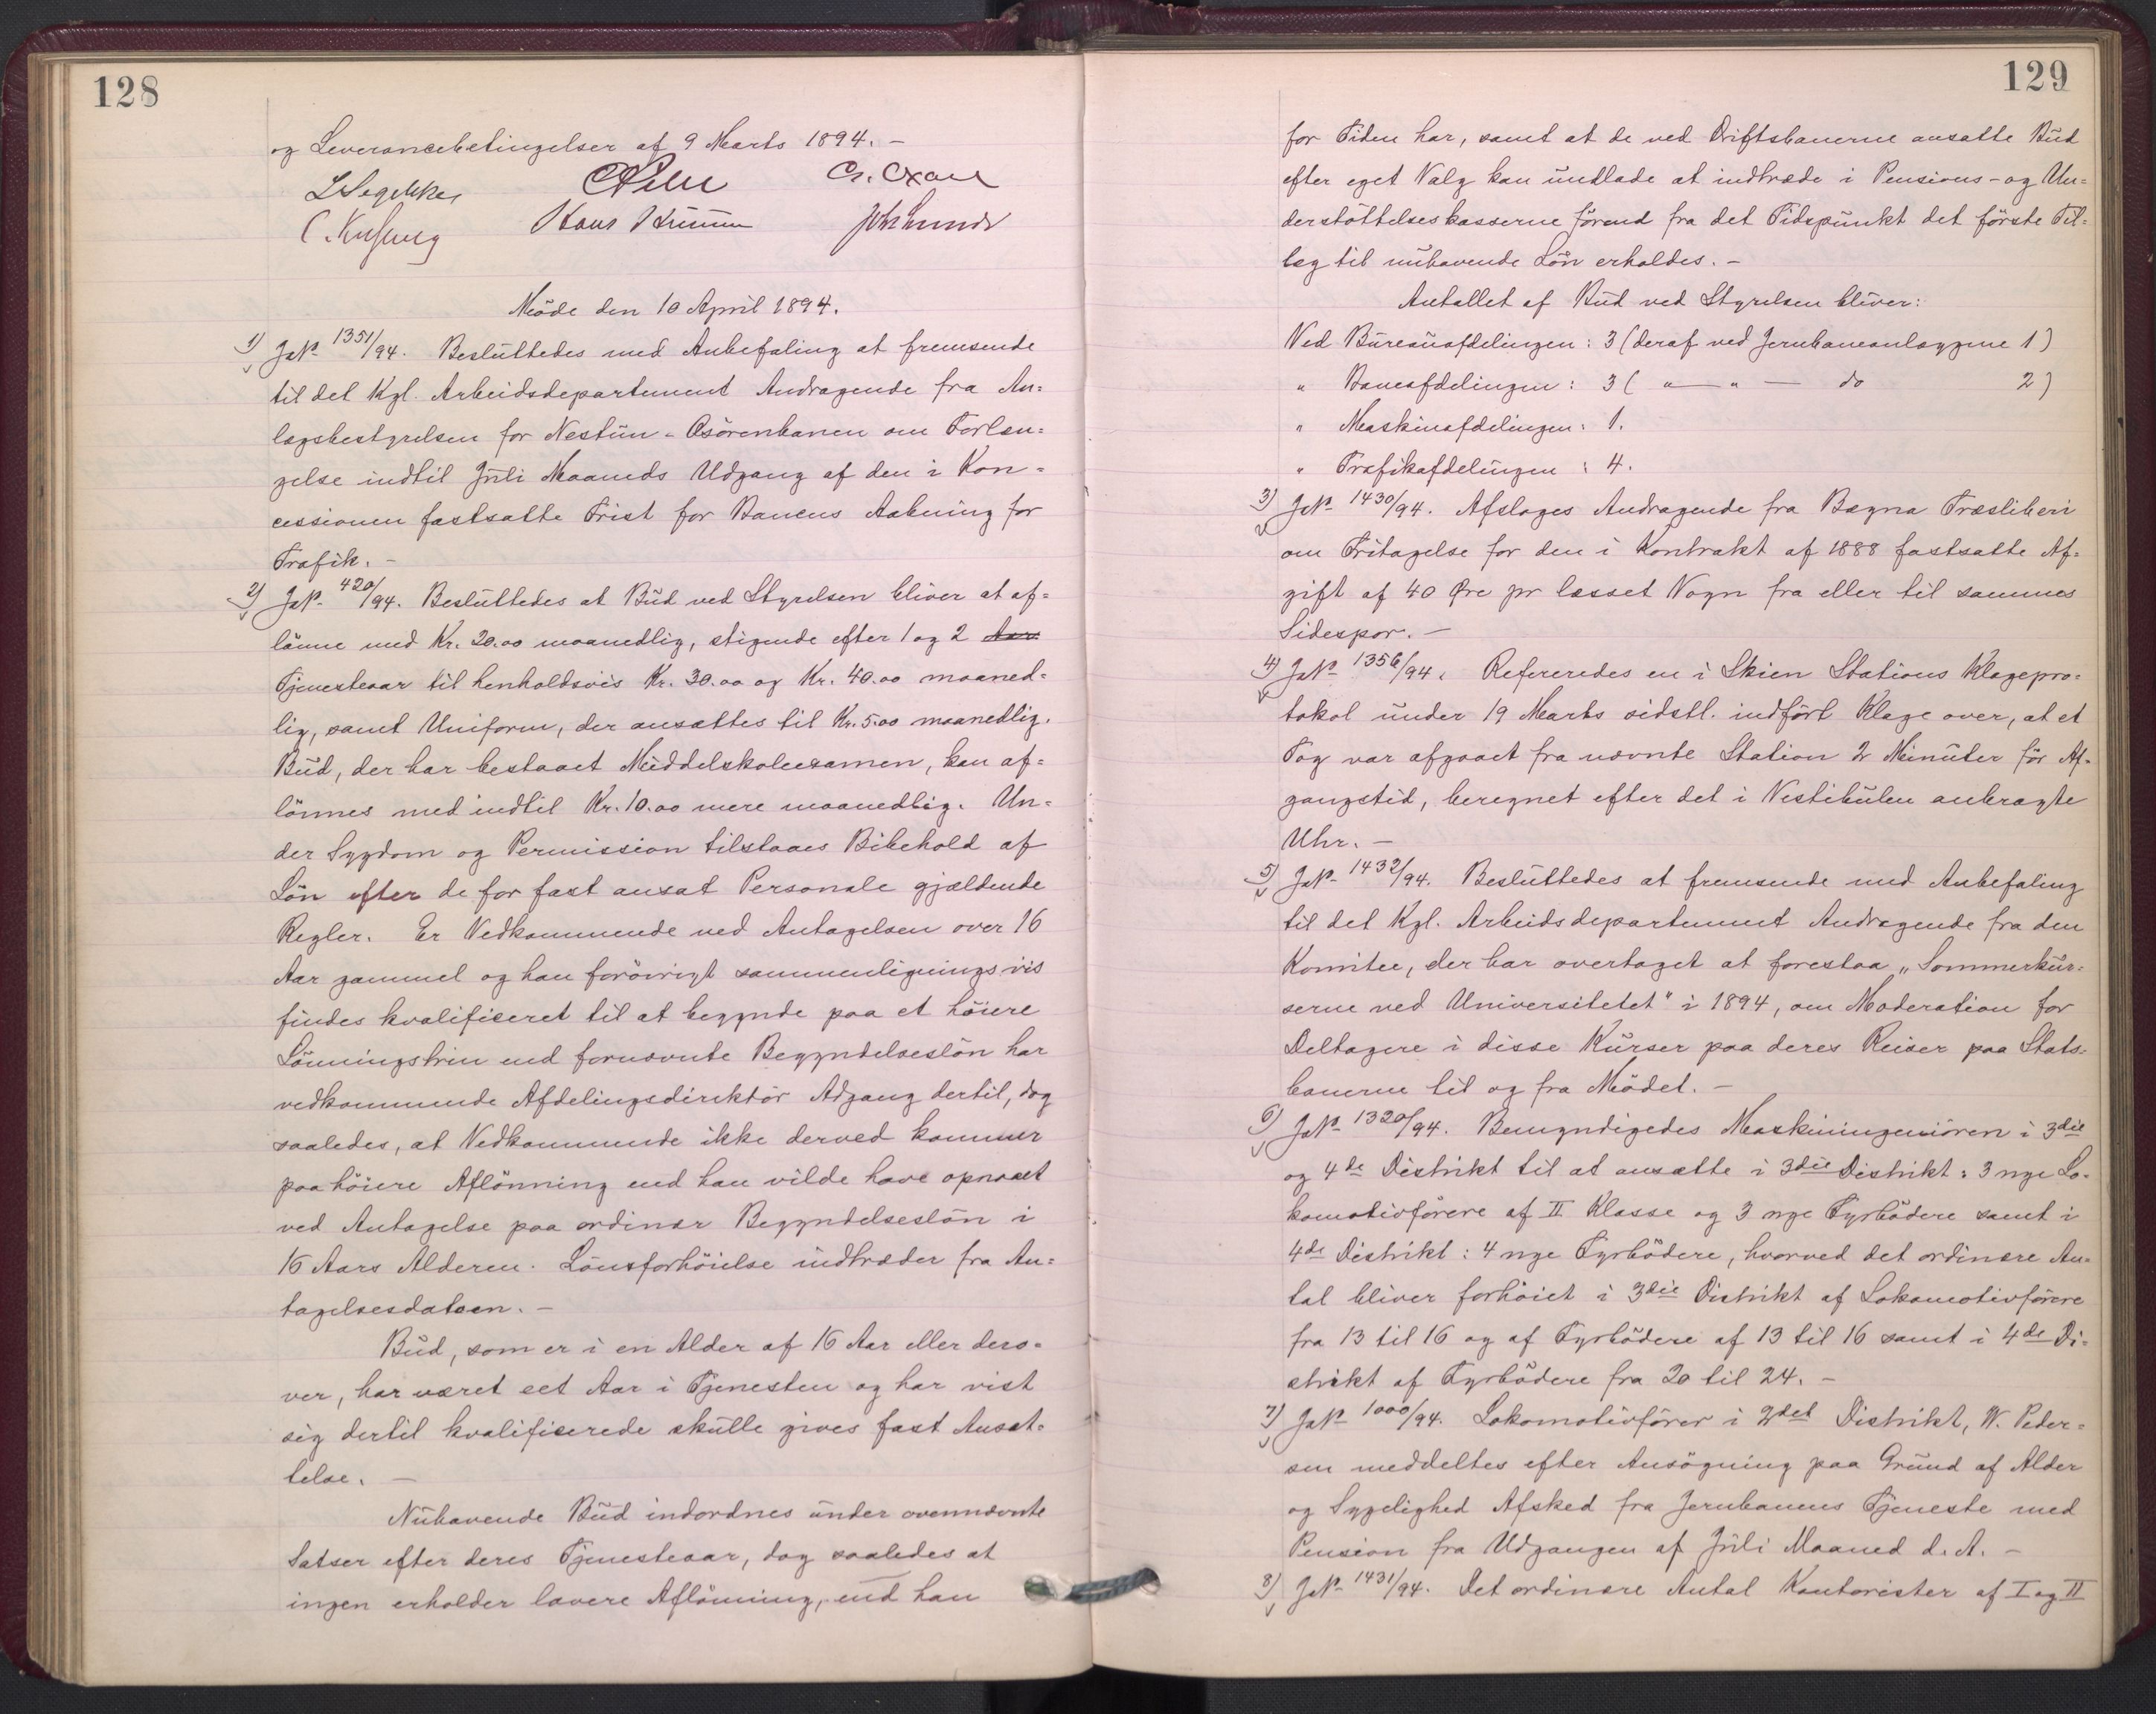 128
og Leverancebetingelser af 9 Marts 1894. –
Hans Krumm Joh Lunde
Møde den 10 April 1894.
1) JNo 1351/94. Besluttedes med Anbefaling at fremsende
til det Kgl. Arbeidsdepartement Andragende fra An=
lægsbestyrelsen for Nestun-Osørenbanen om Forlæn=
gelse indtil Juli Maaneds Udgang af den i Kon=
cessionen fastsatte Frist for Banens Aabning for
Trafik. –
2) JNo 420/94. Besluttedes at Bud ved Styrelsen bliver at af=
lønne med Kr. 20.00 maanedlig, stigende efter 1 og 2 Aar
Tjenesteaar til henholdsvis Kr. 30.00 og Kr. 40.00 maaned=
lig, samt Uniform, der ansættes til Kr. 5.00 maanedlig.
Bud, der har bestaaet Middelskoleexamen, kan af=
lønnes med indtil Kr. 10.00 mere maanedlig. Un=
der Sygdom og Permission tilstaaes Bibehold af
Løn efter de for fast ansat Personale gjældende
Regler. Er Vedkommende ved Antagelsen over 16
Aar gammel og han forøvrigt sammenligningsvis
findes kvalificeret til at begynde paa et høiere
Lønningstrin end fornævnte Begyndelsesløn har
vedkommende Afdelingsdirektør Adgang dertil, dog
saaledes, at Vedkommende ikke derved kommer
paa høiere Aflønning end han vilde have opnaaet
ved Antagelse paa ordinær Begyndelsesløn i
16 Aars Alderen. Lønsforhøielse indtræder fra An=
tagelsesdatoen. –
Bud, som er i en Alder af 16 Aar eller dero=
ver, har været eet Aar i Tjenesten og har vist
sig dertil kvalificerede skulle gives fast Ansæt=
telse. –
Nuhavende Bud indordnes under ovennævnte
Satser efter deres Tjenesteaar, dog saaledes at
ingen erholder lavere Aflønning, end han
129
for Tiden har, samt at de ved Driftsbanerne ansatte Bud
efter eget Valg kan undlade at indtræde i Pensions- og Un=
derstøttelseskasserne førend fra det Tidspunkt det første Til=
læg til nuhavende Løn erholdes. –
Antallet af Bud ved Styrelsen bliver:
Ved Bureauafdelingen: 3 (deraf ved Jernbaneanlæggene 1)
" Baneafdelingen: 3 ( " — " — do 2)
" Maskinafdelingen: 1.
" Trafikafdelingen: 4.
3) JNo 1430/94. Afslages Andragende fra Bægna Træsliberi
om Fritagelse for den i Kontrakt af 1888 fastsatte Af=
gift af 40 Øre pr læsset Vogn fra eller til sammes
Sidespor. –
4) JNo 1356/94. Refereredes en i Skien Stations Klagepro=
tokol under 19 Marts sidstl. indført Klage over, at et
Tog var afgaaet fra nævnte Station 2 Minuter før Af=
gangstid, beregnet efter det i Vestibulen anbragte
Uhr. –
5) JNo 1432/94. Besluttedes at fremsende med Anbefaling
til det Kgl. Arbeidsdepartement Andragende fra den
Komitee, der har overtaget at forestaa „Sommerkur=
serne ved Universitetet" i 1894, om Moderation for
Deltagere i disse Kurser paa deres Reiser paa Stats=
banerne til og fra Mødet. –
6) JNo 1320/94. Bemyndigedes Maskiningeniøren i 3die
og 4de Distrikt til at ansætte i 3die Distrikt: 3 nye Lo=
komotivførere af II Klasse og 3 nye Fyrbødere samt i
4de Distrikt: 4 nye Fyrbødere, hvorved det ordinære An=
tal bliver forhøiet i 3die Distrikt af Lokomotivførere
fra 13 til 16 og af Fyrbødere af 13 til 16 samt i 4de Di=
strikt af Fyrbødere fra 20 til 24. –
7) JNo 1000/94. Lokomotivfører i 2det Distrikt, W. Peder=
sen meddeltes efter Ansøgning paa Grund af Alder
og Sygelighed Afsked fra Jernbanens Tjeneste med
Pension fra Udgangen af Juli Maaned d. A. –
8) JNo 1431/94. Det ordinære Antal Kontorister af I og II